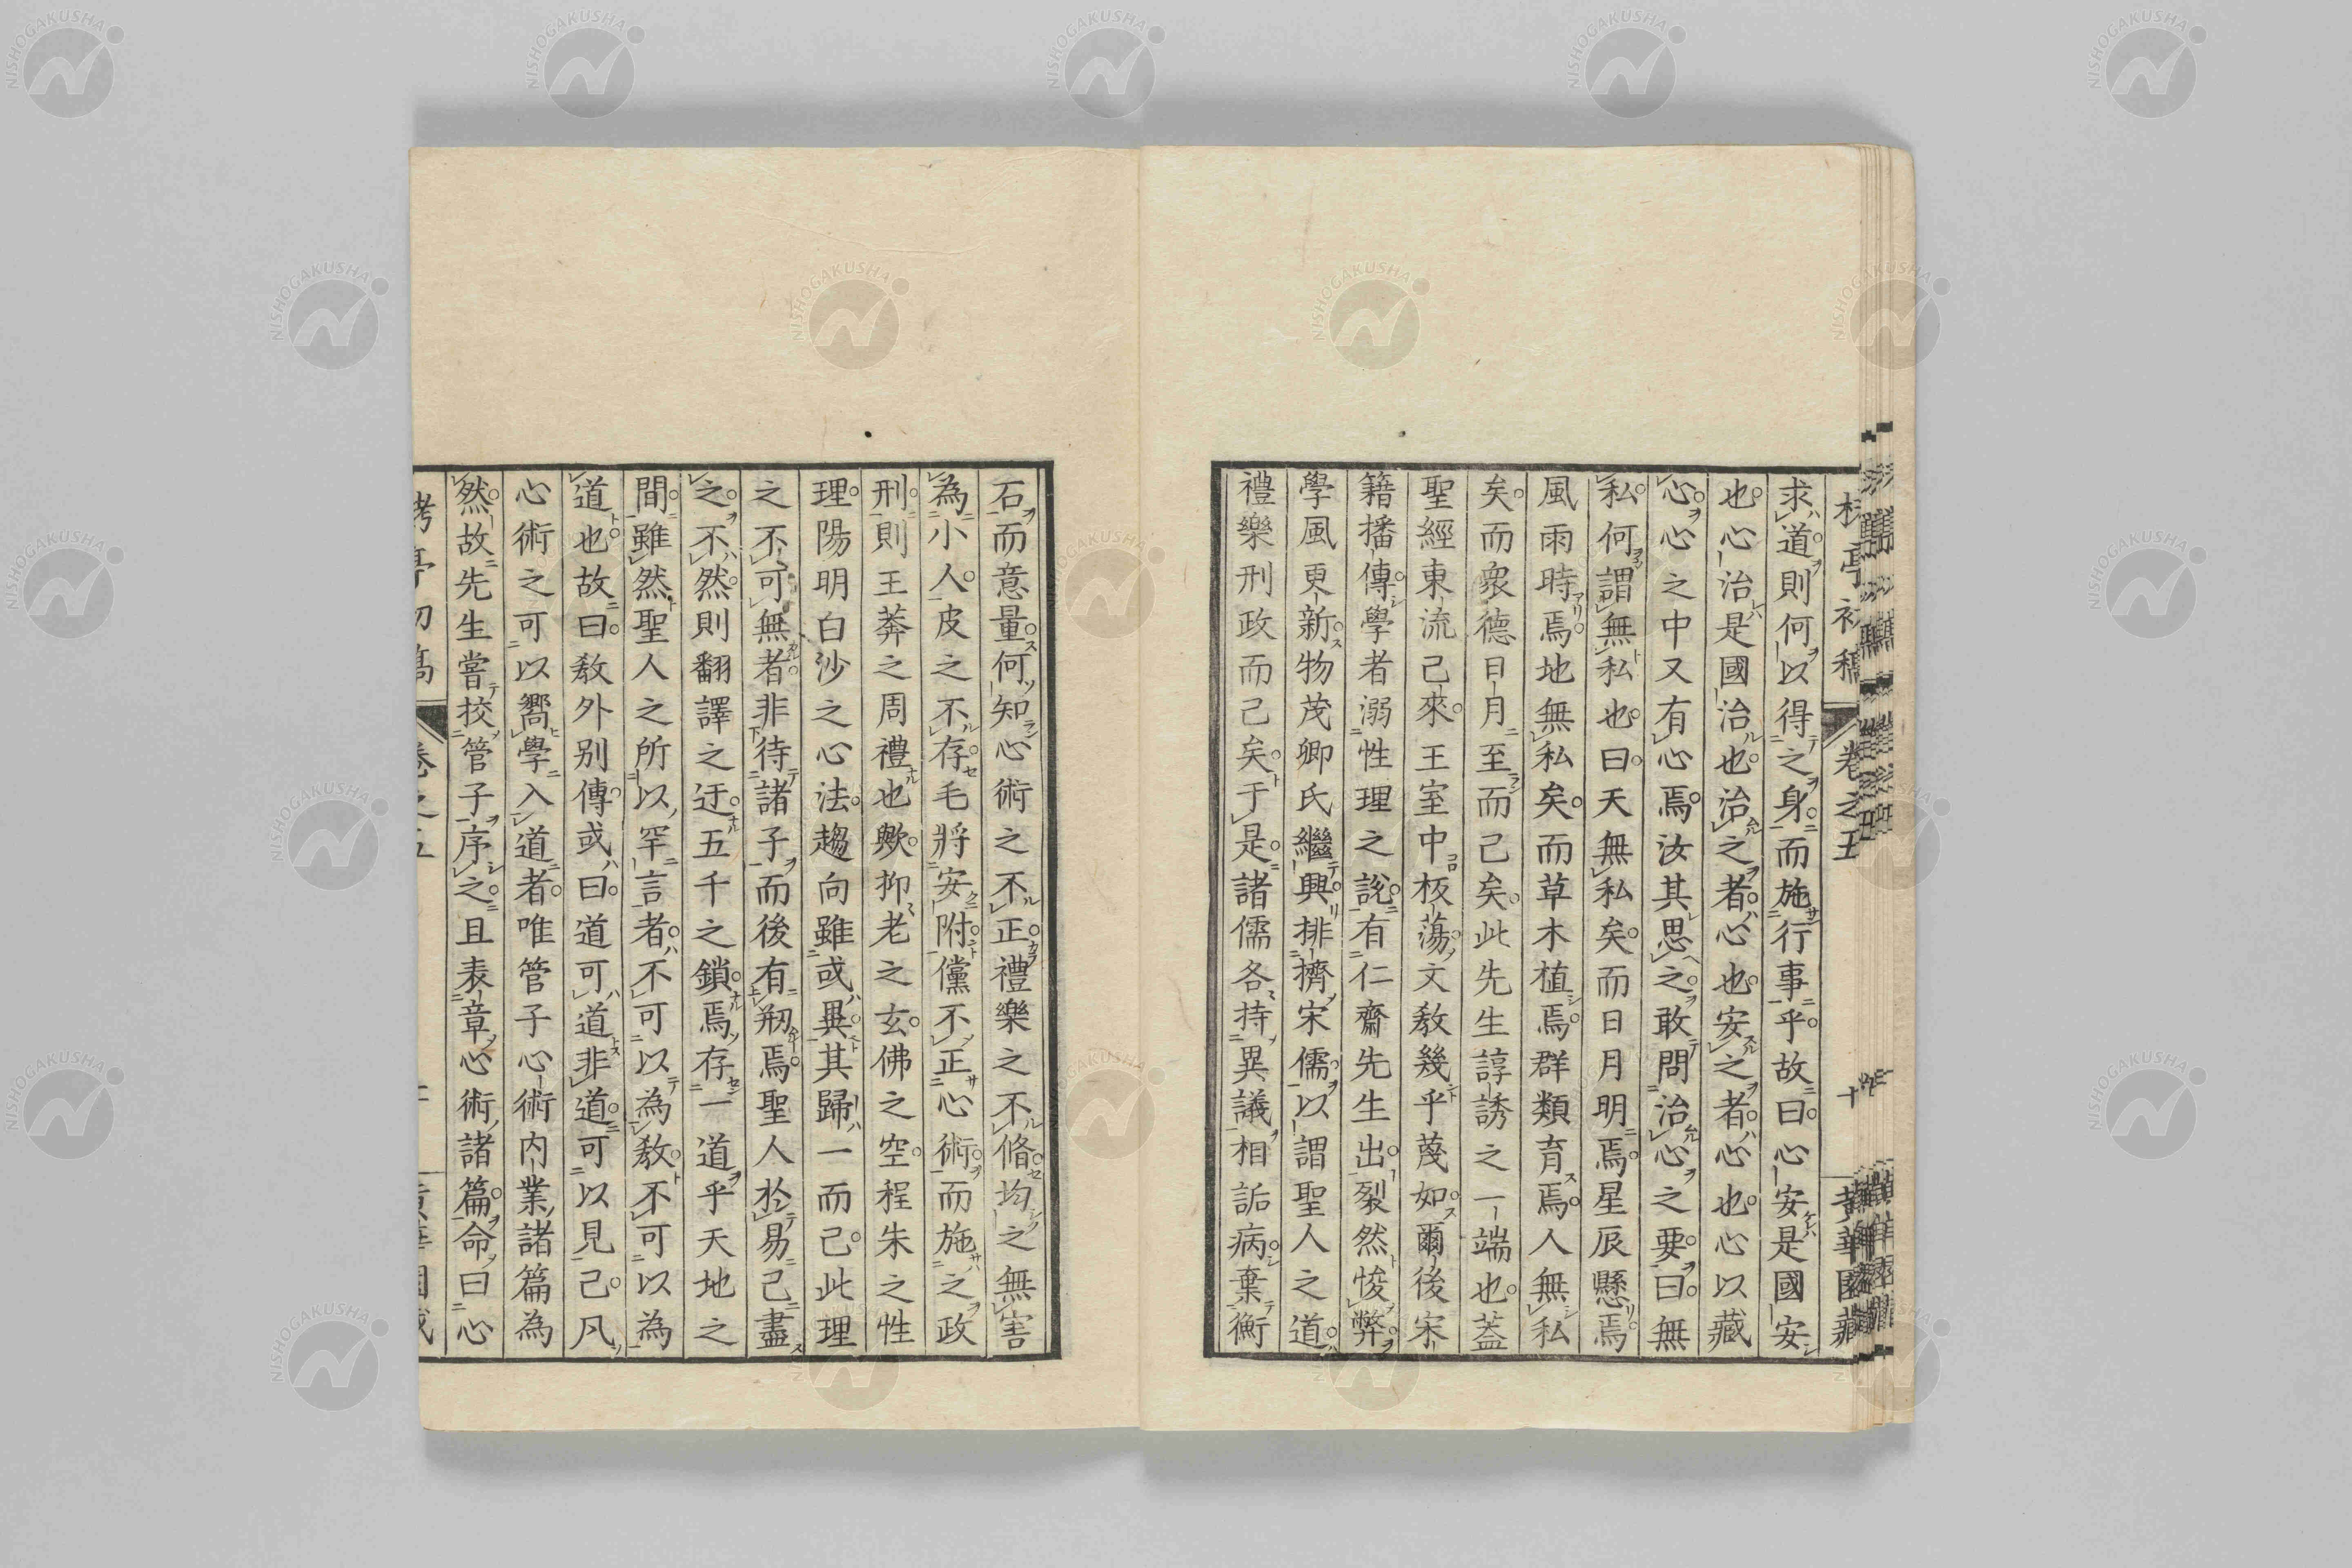 求道則何以得之身而施行事乎故曰心安是國安
也心治是國治也治之者心也安之者心也心以藏
心心之中又有心焉汝其思之敢問治心之要曰無
私何謂無私也曰天無私矣而日月明焉星辰懸焉
風雨時焉地無私矣而草木植焉群類育焉人無私
矣而衆德日月至而已矣此先生諄誘之一端也蓋
聖經東流已來王室中板蕩文教幾乎蔑如爾後宋
籍播傳學者溺性理之說有仁齋先生出裂然悛弊
學風更新物茂卿氏繼興排擠宋儒以謂聖人之道
禮樂刑政而已矣于是諸儒各持異議相詬病棄衡
石而意量何知心術之不正禮樂之不脩均之無害
為小人皮之不存毛將安附儻不正心術而施之政
刑則王莽之周禮也歟抑老之玄佛之空程朱之性
理陽明白沙之心法趨向雖或異其歸一而已此理
之不可無者非待諸子而後有剏焉聖人於易已盡
之不然則翻譯之迂五千之鎖焉存一道乎天地之
間雖然聖人之所以罕言者不可以為教不可以為
道也故曰教外別傳或曰道可道非道可以見已凡
心術之可以嚮學入道者唯管子心術内業諸篇為
然故先生嘗校管子序之且表章心術諸篇命曰心
卷之五
黃華園藏